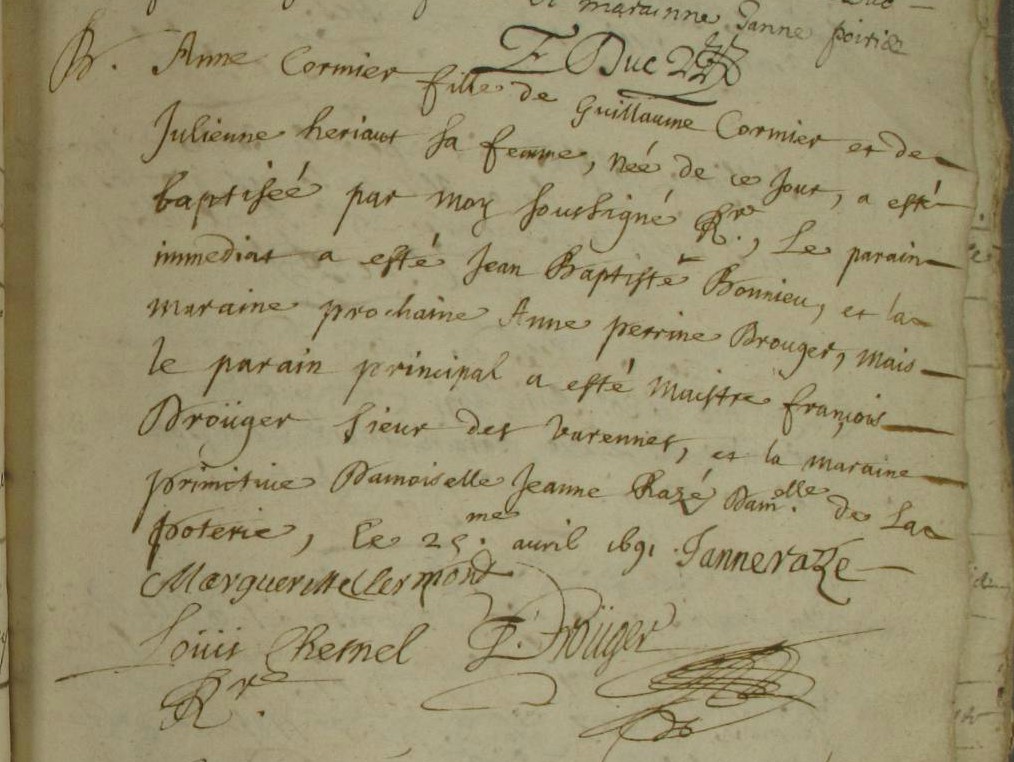 et marainne Janne poirier
F Duc
B. Anne Cormier fille de Guillaume Cormier et de
Julienne heriaut sa femme, neé de ce jour, a esté
baptiseé par moy soussigné Rr., Le parain
immediat a esté Jean Baptiste Bonnieu, et la
maraine prochaine Anne perrine Drouger, mais
le parain principal a esté maistre françois
Droüger sieur des varennes, et la maraine
primitiue Damoiselle Jeanne Razé Dam.elle de La
poterie, le 25.me auril 1691 Janne raze
Margueritte Clermont
Louis Chesnel F. Droüger
Rr.